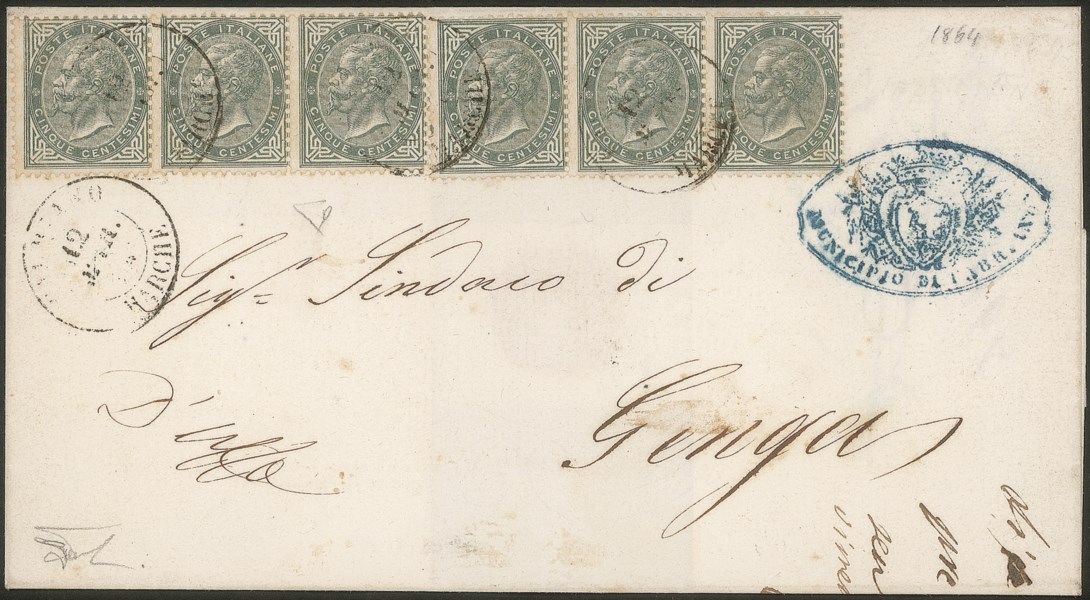 POSTE ITALIANE CINQUE CENTESIMI
POSTE ITALIANE CINQUE CENTESIMI
POSTE ITALIANE CINQUE CENTESIMI
POSTE ITALIANE CINQUE CENTESIMI
POSTE ITALIANE CINQUE CENTESIMI
POSTE ITALIANE CINQUE CENTESIMI
1864
12
MARCHE
MUNICIPIO DI FABRIANO
Sigr Sindaco di
Genga
D'uffo